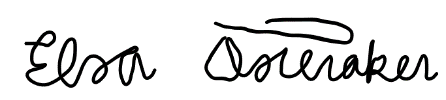 Elsa Osteraker